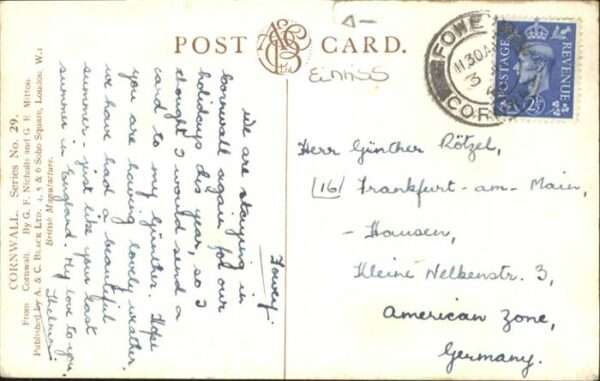 POST CARD.
A&CB
Ltd
Einiss
FOWEY
11 30 A
3
CORN
POSTAGE REVENUE
2½
Fowey.
We are staying in
Cornwall again for our
holidays this year, so I
thought I would send a
card to my Günther. Hope
you are having lovely weather.
we have had a beautiful
summer - just like your last
summer in England. My love to you,
Thelma.
Herr Günther Rötzel,
(16) Frankfurt-am-Main,
- Hausen,
Kleine Nelkenstr. 3,
American Zone,
Germany.
CORNWALL. Series No. 29.
From Cornwall. By G. F. Nicholls and G. E. Mitton.
Published by A. & C. BLACK LTD., 4, 5 & 6 Soho Square, London, W.1
British Manufacture.